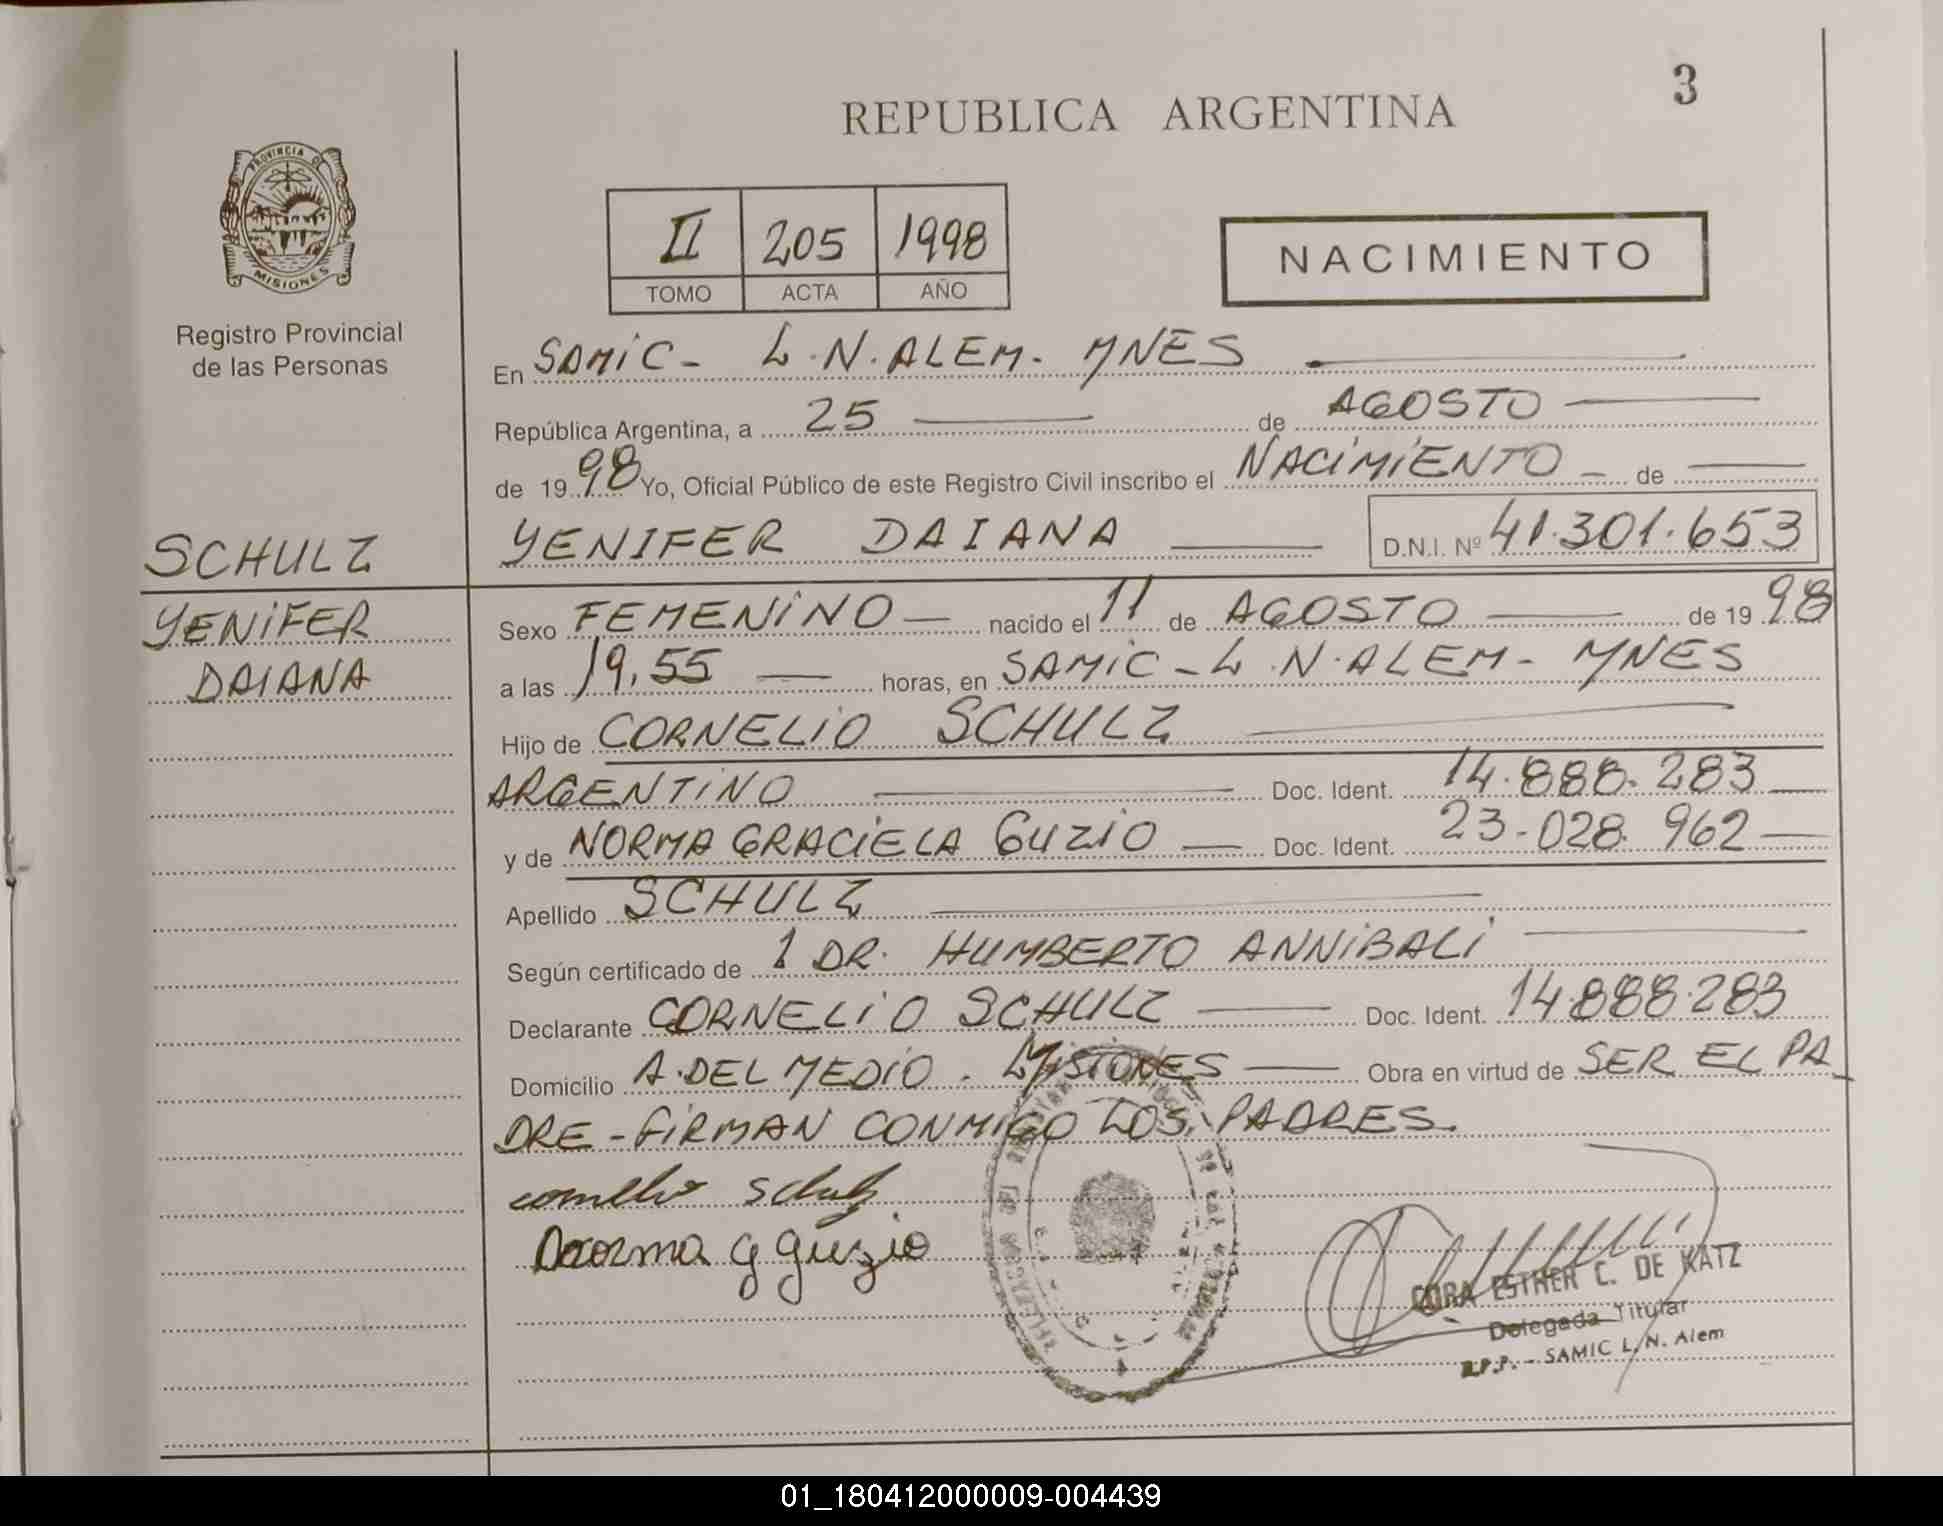 3
REPUBLICA ARGENTINA
PROVINCIA DE
MISIONES
Registro Provincial
de las Personas
II 205 1998
TOMO ACTA AÑO
NACIMIENTO
En SAMIC - L.N. ALEM - MNES
República Argentina, a 25 de AGOSTO
de 1998 Yo, Oficial Público de este Registro Civil inscribo el NACIMIENTO - de
SCHULZ
YENIFER DAIANA D.N.I. Nº 41.301.653
YENIFER
DAIANA
Sexo FEMENINO nacido el 11 de AGOSTO de 1998
a las 19,55 horas, en SAMIC - L.N. ALEM - MNES
Hijo de CORNELIO SCHULZ
ARGENTINO Doc. Ident. 14.888.283
y de NORMA GRACIELA GUZIO Doc. Ident. 23-028.962
Apellido SCHULZ
Según certificado de 1 DR. HUMBERTO ANNIBALI
Declarante CORNELIO SCHULZ Doc. Ident. 14.888.283
Domicilio A. DEL MEDIO - MISIONES Obra en virtud de SER EL PA
DRE - FIRMAN CONMIGO LOS PADRES.
cornelio Schulz
Norma G Guzio
CORA ESTHER C. DE KATZ
Delegada Titular
R.P.P. - SAMIC L. N. Alem
01_180412000009-004439